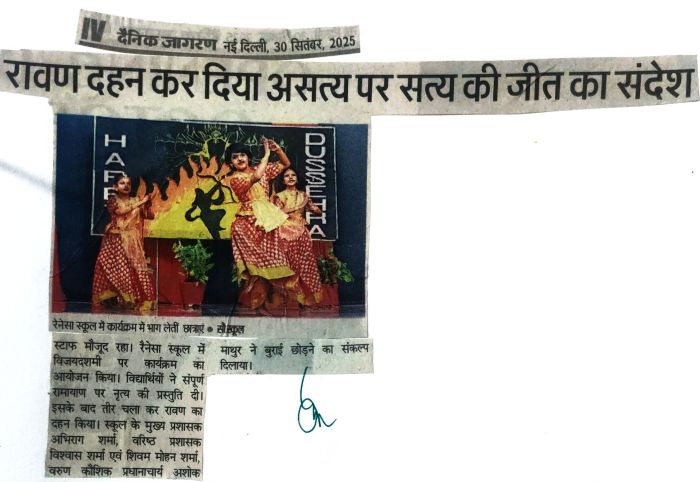 IV दैनिक जागरण नई दिल्ली, 30 सितंबर, 2025
रावण दहन कर दिया असत्य पर सत्य की जीत का संदेश
HAPP
DUSSEHRA
रेनेसा स्कूल में कार्यक्रम में भाग लेतीं छात्राएं ● सौ. स्कूल
स्टाफ मौजूद रहा। रैनेसा स्कूल में
विजयदशमी पर कार्यक्रम का
आयोजन किया। विद्यार्थियों ने संपूर्ण
रामायाण पर नृत्य की प्रस्तुति दी।
इसके बाद तीर चला कर रावण का
दहन किया। स्कूल के मुख्य प्रशासक
अभिराग शर्मा, वरिष्ठ प्रशासक
विश्वास शर्मा एवं शिवम मोहन शर्मा,
वरुण कौशिक प्रधानाचार्य अशोक
माथुर ने बुराई छोड़ने का संकल्प
दिलाया।